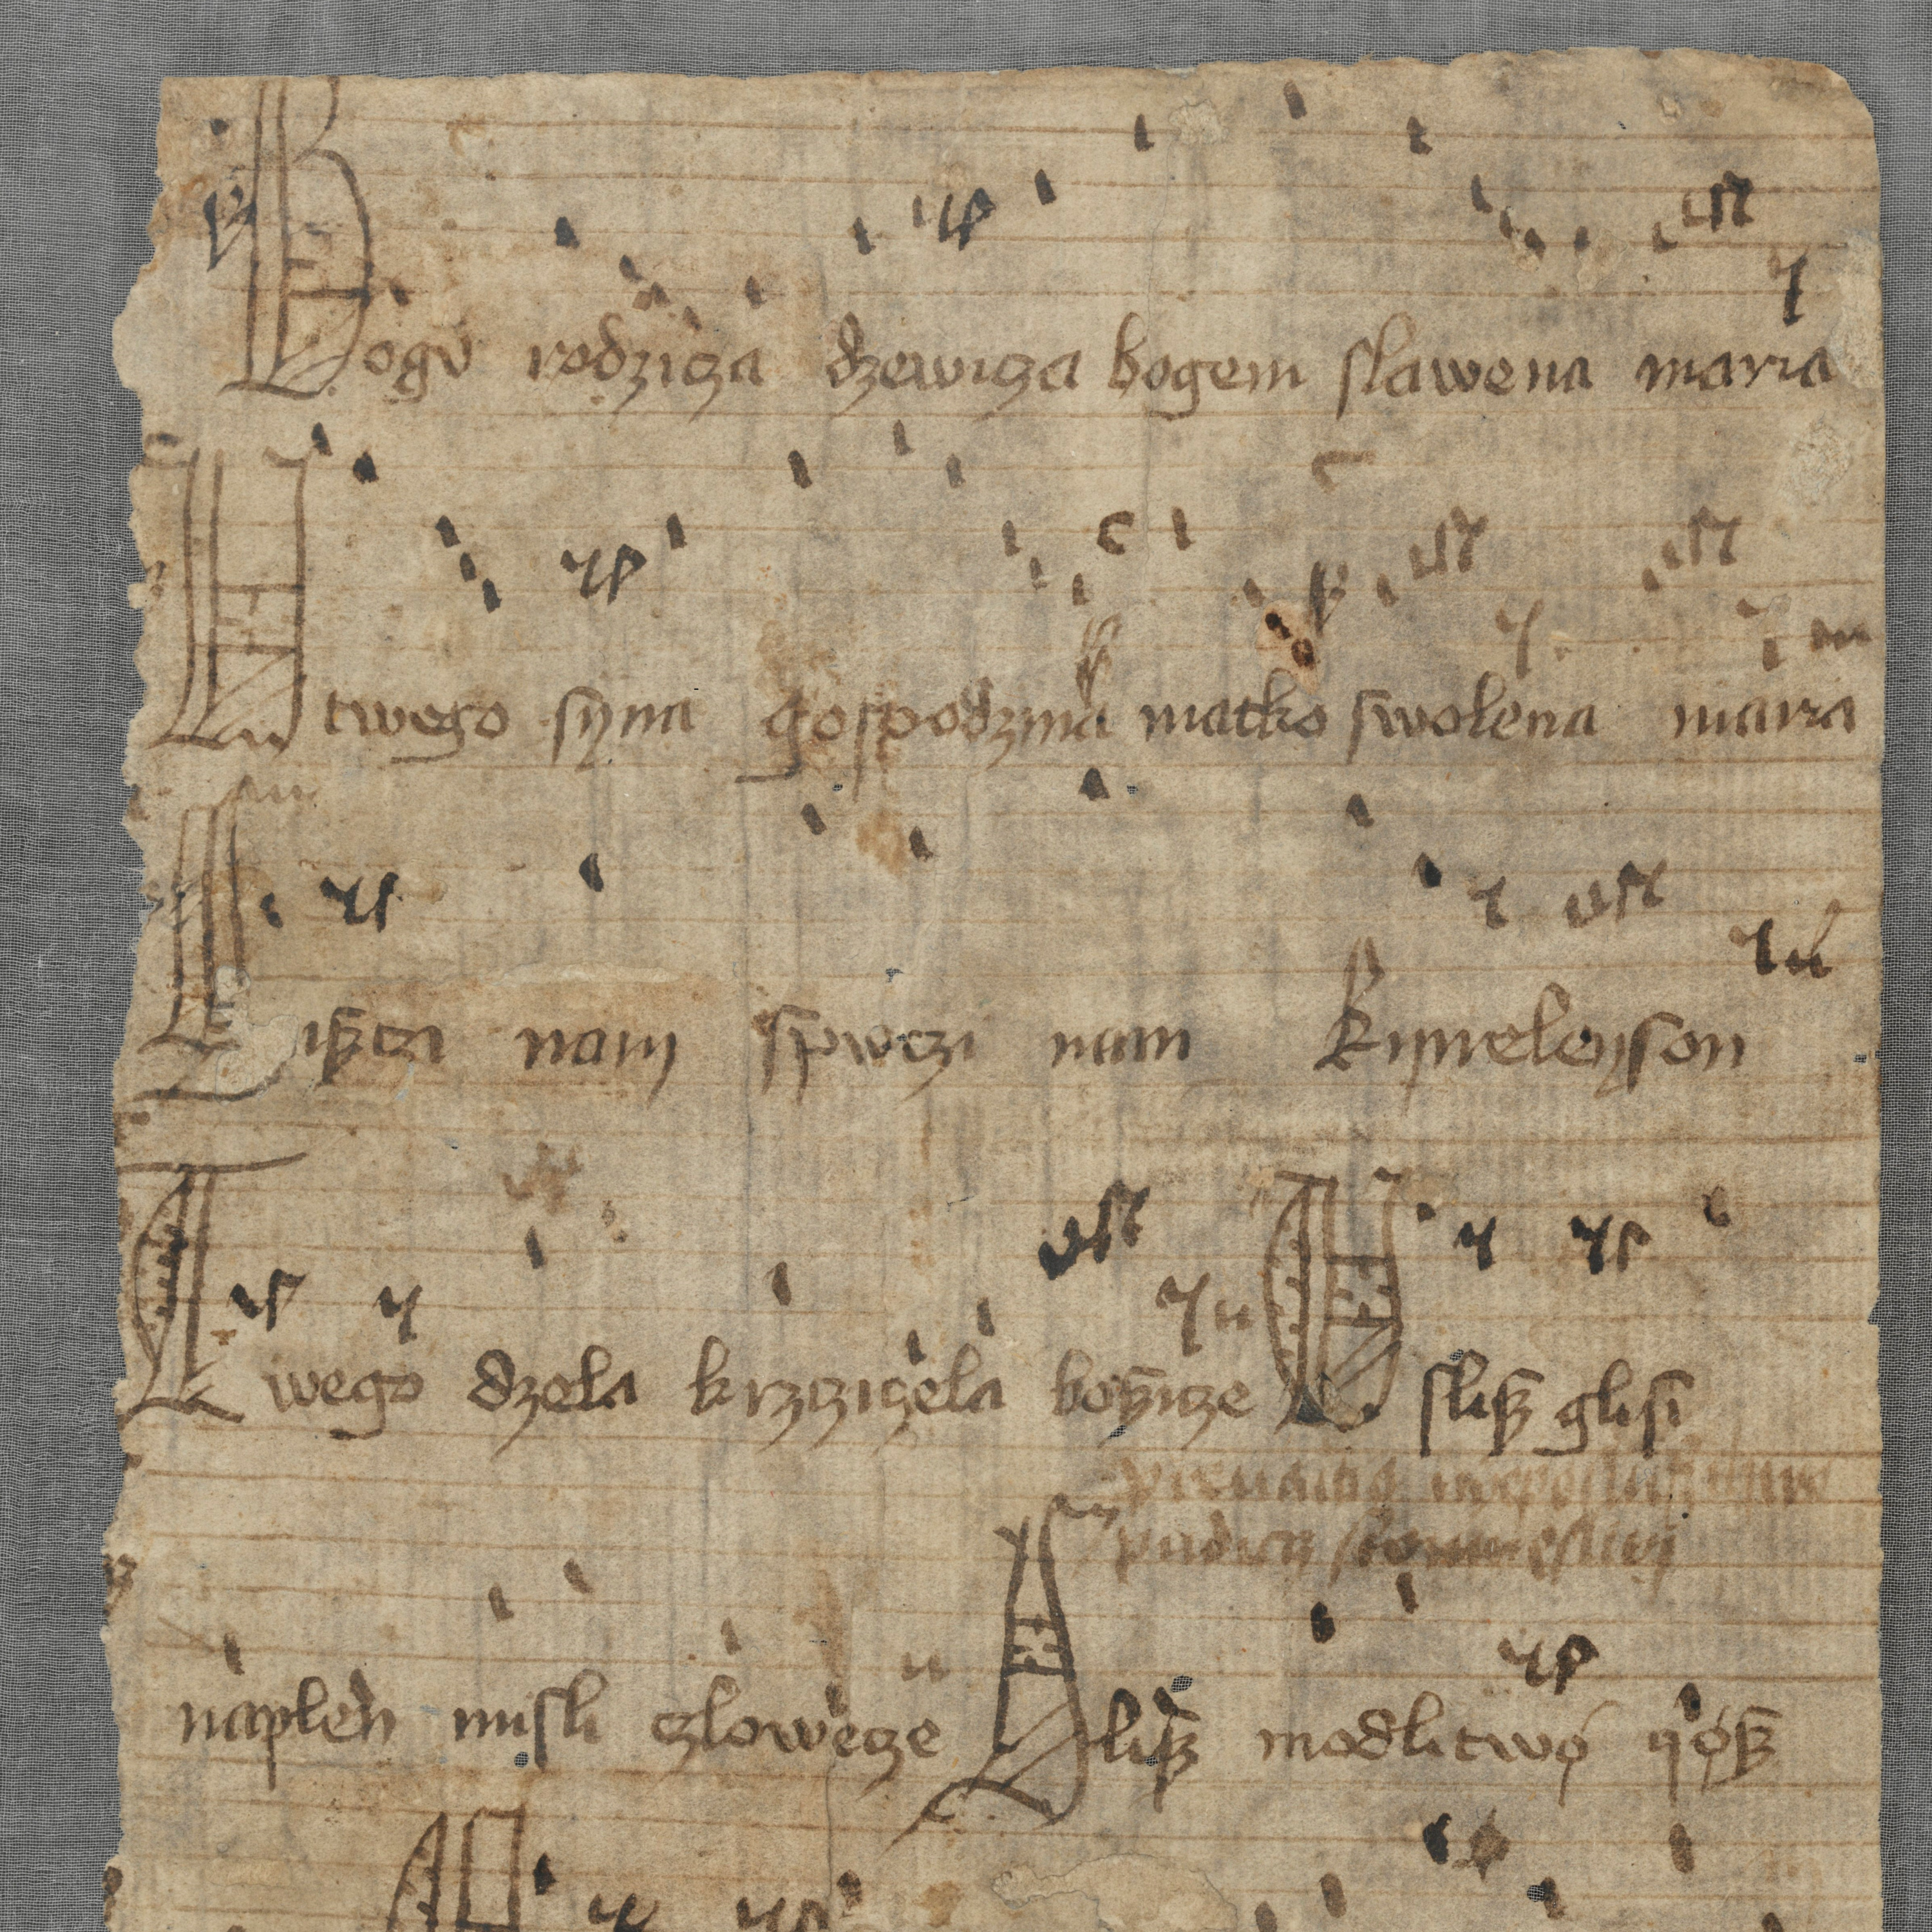 Bogv rodzicza dzewicza bogem slawena maria
U twego syna gospodzina matko swolena maria
Siszczi nam spwczi nam Kyrieleyson
Twego dzela krzcziczela boszicze Uslisz glosi
naplen misli czlowecze Slisz modlitwø yøsz